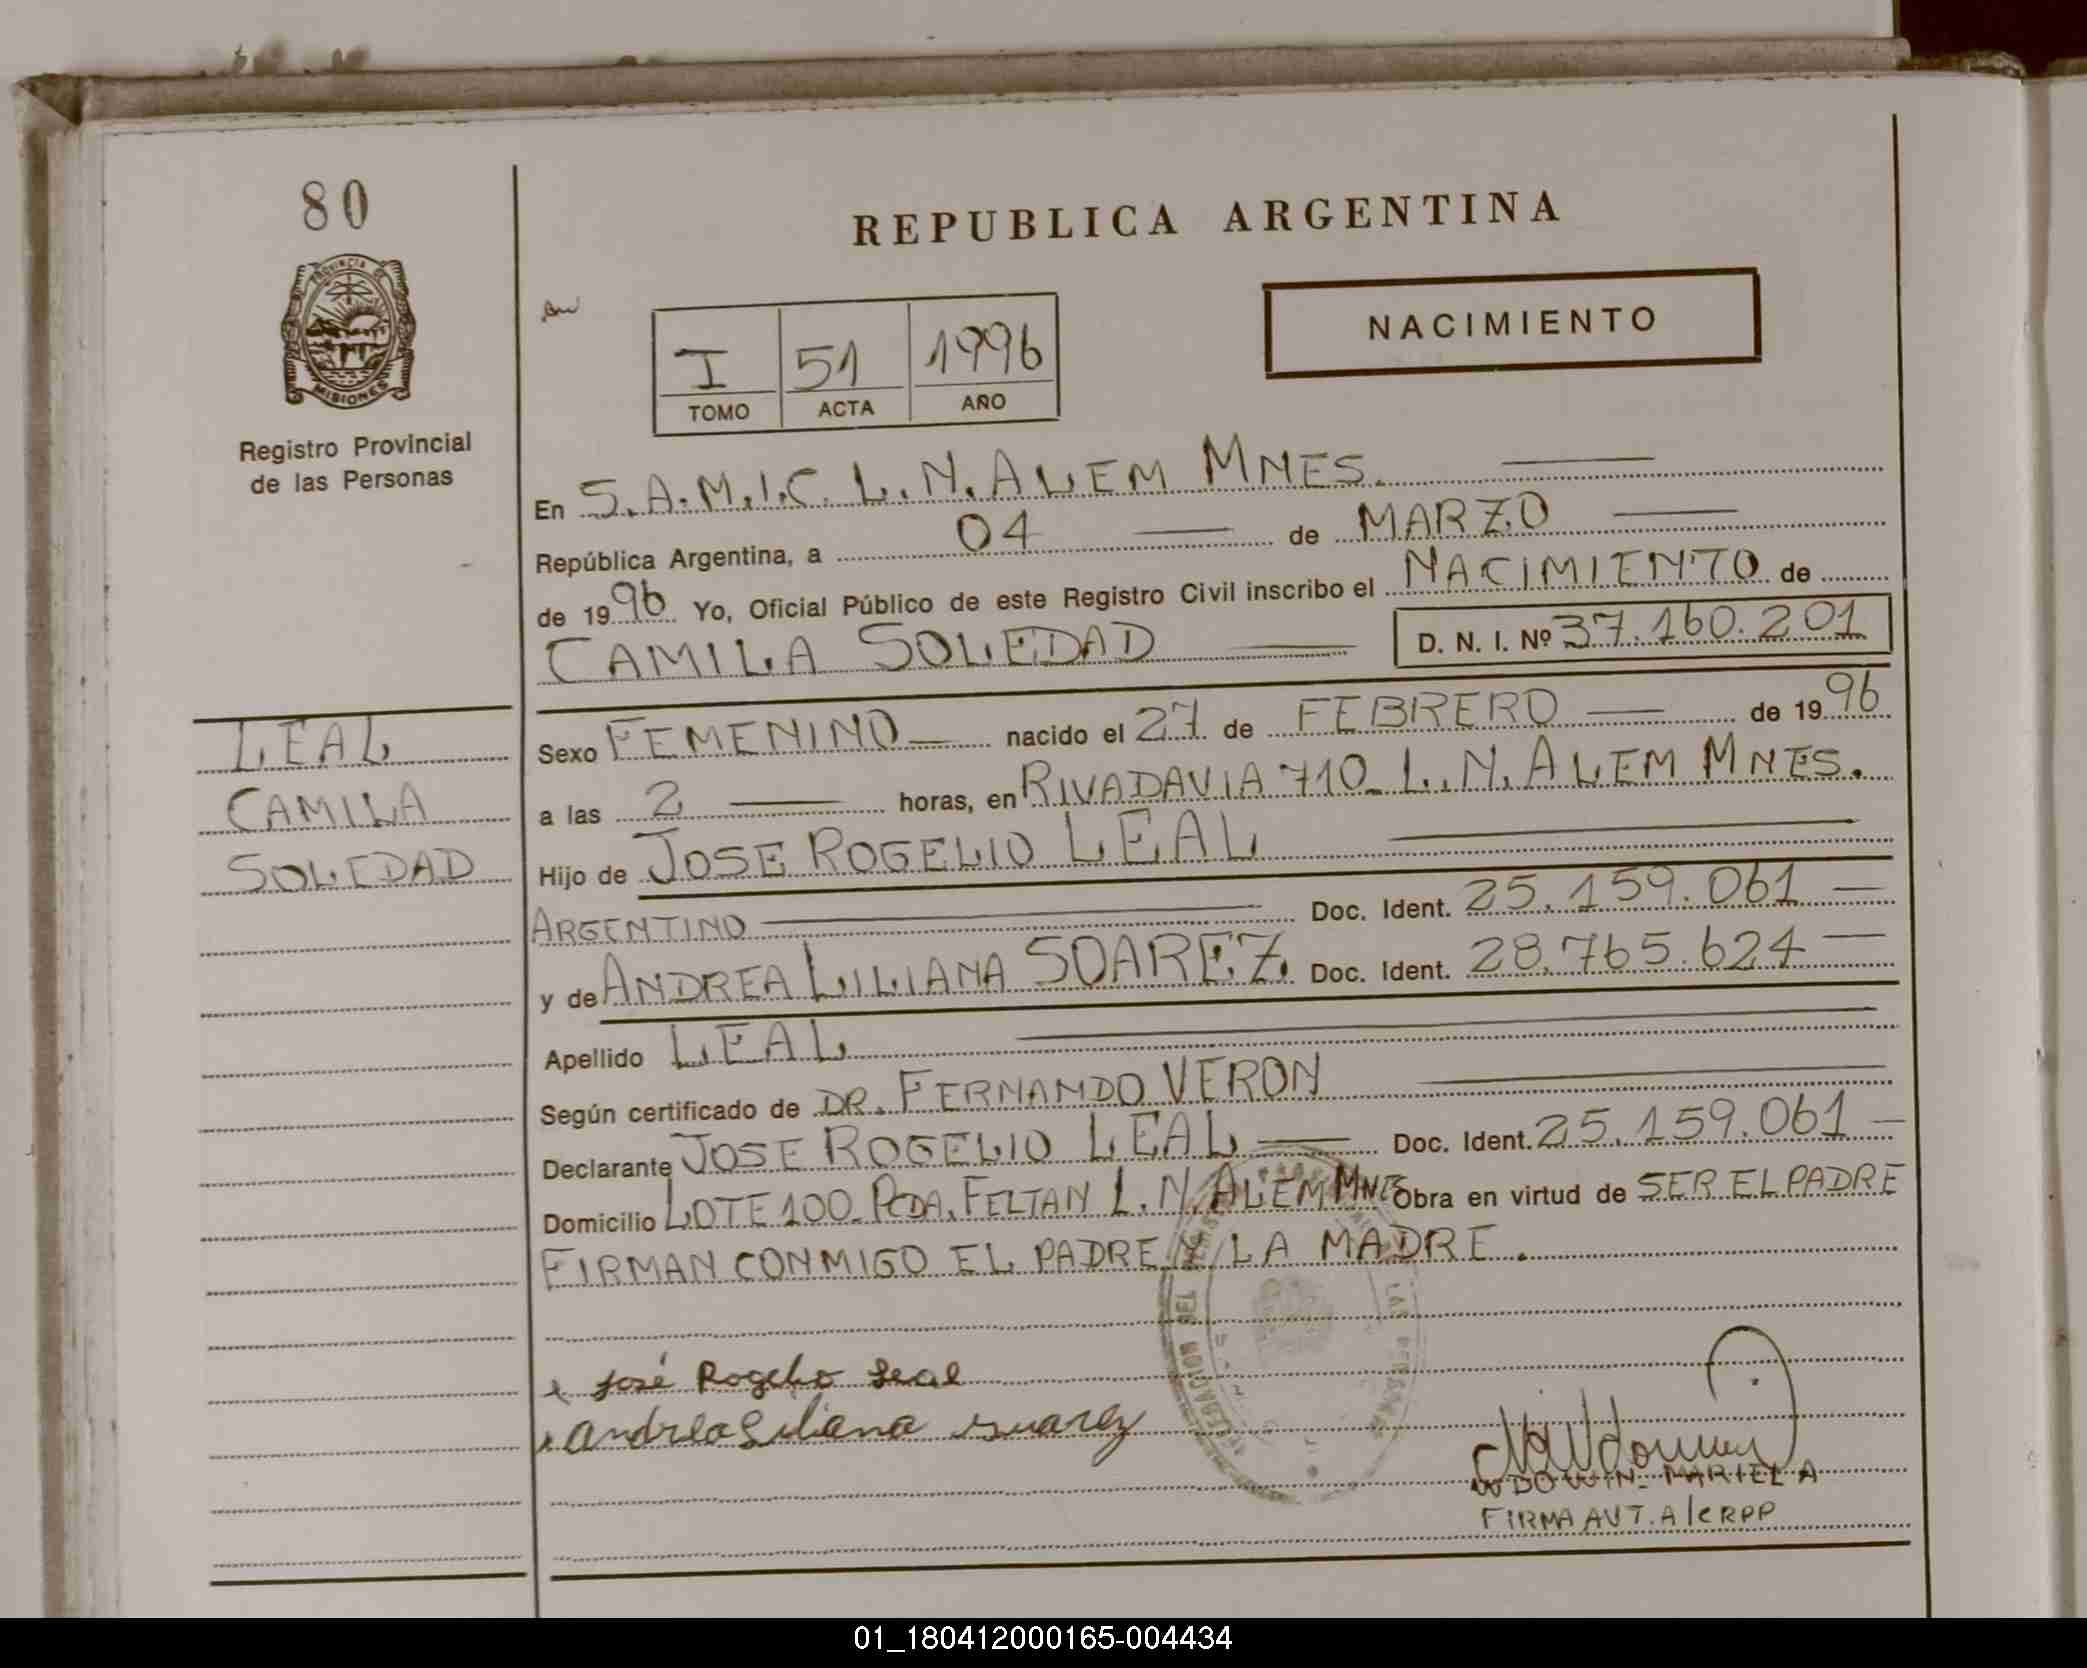 80
PROVINCIA DE
MISIONES
Registro Provincial
de las Personas
LEAL
CAMILA
SOLEDAD
REPUBLICA ARGENTINA
I 51 1996
TOMO ACTA AÑO
NACIMIENTO
En S.A.M.I.C. L.N.ALEM MNES.
República Argentina, a 04 de MARZO
de 1996 Yo, Oficial Público de este Registro Civil inscribo el NACIMIENTO de
CAMILA SOLEDAD D. N. I. Nº 37.160.201
Sexo FEMENINO nacido el 27 de FEBRERO de 1996
a las 2 horas, en RIVADAVIA 710 L.N.ALEM MNES.
Hijo de JOSE ROGELIO LEAL
ARGENTINO Doc. Ident. 25.159.061
y de ANDREA LILIANA SOAREZ Doc. Ident. 28.765.624
Apellido LEAL
Según certificado de DR. FERNANDO VERON
Declarante JOSE ROGELIO LEAL Doc. Ident. 25.159.061
Domicilio LOTE 100 PCDA. FELTAN L.N.ALEM MNES Obra en virtud de SER EL PADRE
FIRMAN CONMIGO EL PADRE Y LA MADRE.
José Rogelio Leal
Andrea Liliana suarez
DEL
LAS PERSONAS
WDOWIN MARIELA
FIRMA AUT. A/C RPP
01_180412000165-004434